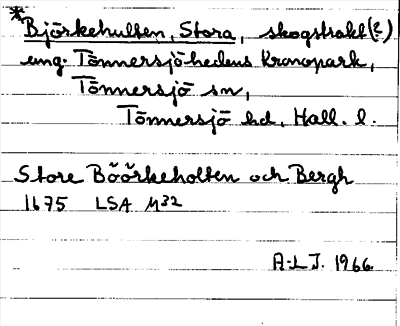 *Björkehulten, Stora, skogstrakt(?)
omg. Tönnersjöhedens Kronopark,
Tönnersjö sn,
Tönnersjö hd, Hall. l.
StoreBöörkeholten och Bergh
1675 LSA M32
A.L.J. 1966